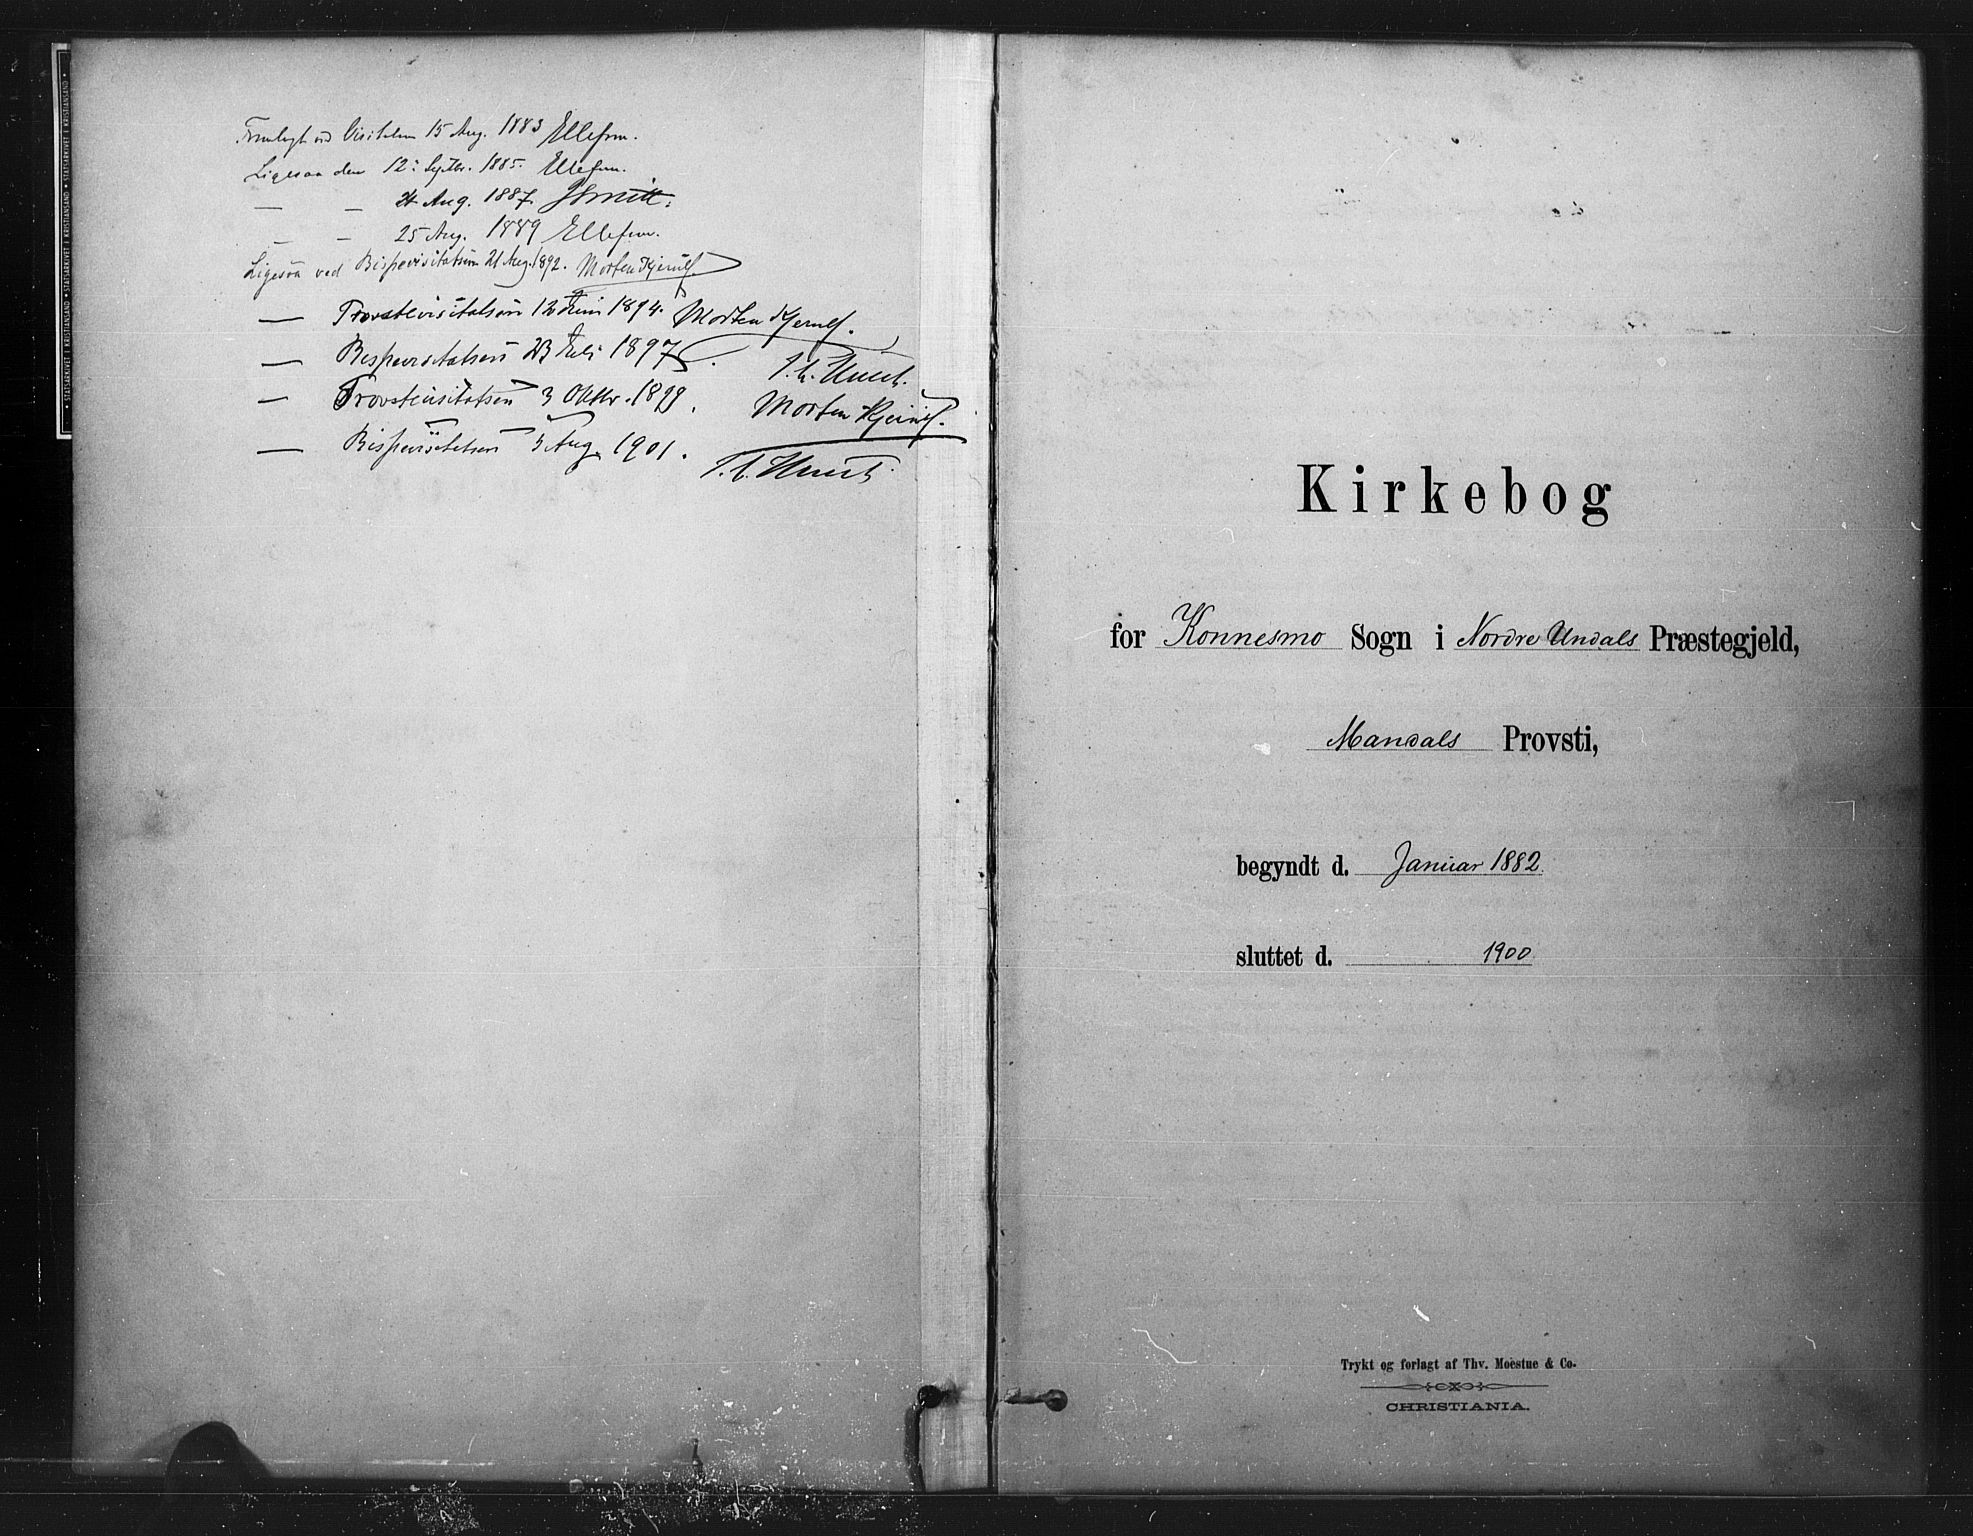 Fremlagt ved Visitatsen 15 Aug. 1883 Ellefsen.
Ligesaa den 12te Septbr. 1885. Ellefsen.
— — 24 Aug. 1887.
— — 25 Aug. 1889 Ellefsen.
Ligesaa ved Bispevisitatsen 21 Aug. 1892. Morten Kjerulf.
— Provstevisitatsen 12 Juni 1894. Morten Kjerulf.
— Bispevisitatsen 23 Juli 1897.
— Provstevisitatsen 3 Oktbr. 1899. Morten Kjerulf.
— Bispevisitatsen 5 Aug. 1901.
• STATSARKIVET I KRISTIANSAND • STATSARKIVET I KRISTIANSAND • STATSARKIVET I KRISTIANSAND •
Kirkebog
for Konnesmo Sogn i Nordre Undals Præstegjeld,
Mandals Provsti,
begyndt d. Januar 1882.
sluttet d. 1900
Trykt og forlagt af Thv. Moestue & Co.
CHRISTIANIA.